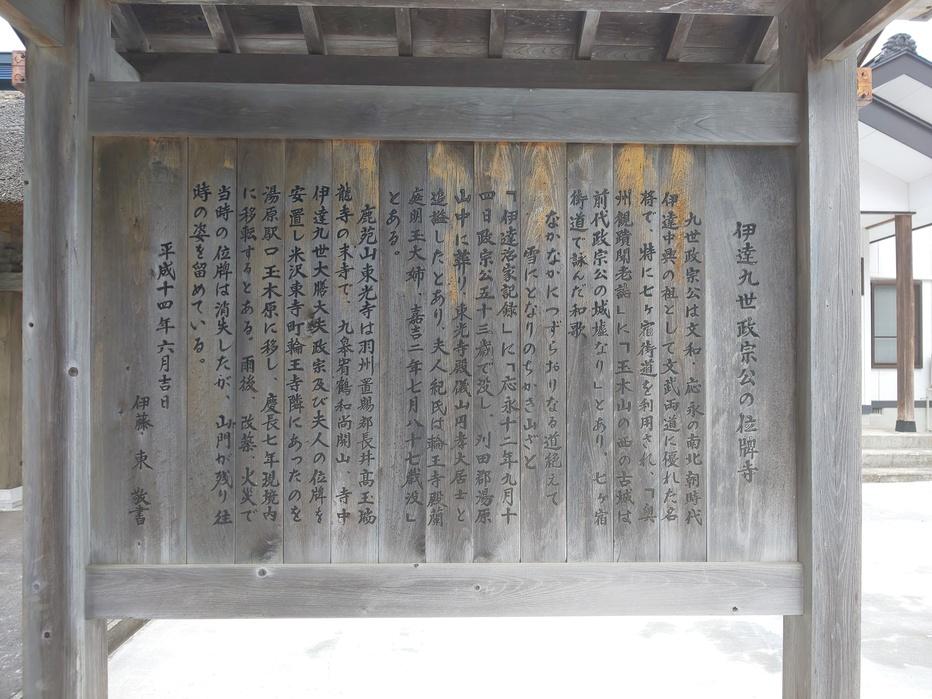 伊達九世政宗公の位牌寺
九世政宗公は文和、応永の南北朝時代
伊達中興の祖として文武両道に優れた名
将で、特に七ヶ宿街道を利用され、「奥
州観蹟聞老誌」に「玉木山の西の古城は
前代政宗公の城墟なり」とあり、七ヶ宿
街道で詠んだ和歌
なかなかにつずらおりなる道絶えて
雪にとなりのちかき山ざと
「伊達治家記録」に「応永十二年九月十
四日政宗公五十三歳で没し、刈田郡湯原
山中に葬り、東光寺殿儀山円孝大居士と
追謚したとあり、夫人紀氏は輪王寺殿蘭
庭明玉大姉、嘉吉二年七月八十七歳没」
とある。
鹿苑山東光寺は羽州置賜郡長井髙玉瑞
龍寺の末寺で、九皋省鶴和尚開山、寺中
伊達九世大膳大夫政宗及び夫人の位牌を
安置し米沢東寺町輪王寺隣にあったのを
湯原駅口玉木原に移し、慶長七年現境内
に移転するとある。雨後、改築、火災で
当時の位牌は消失したが、山門が残り往
時の姿を留めている。
平成十四年六月吉日
伊藤 東 敬書